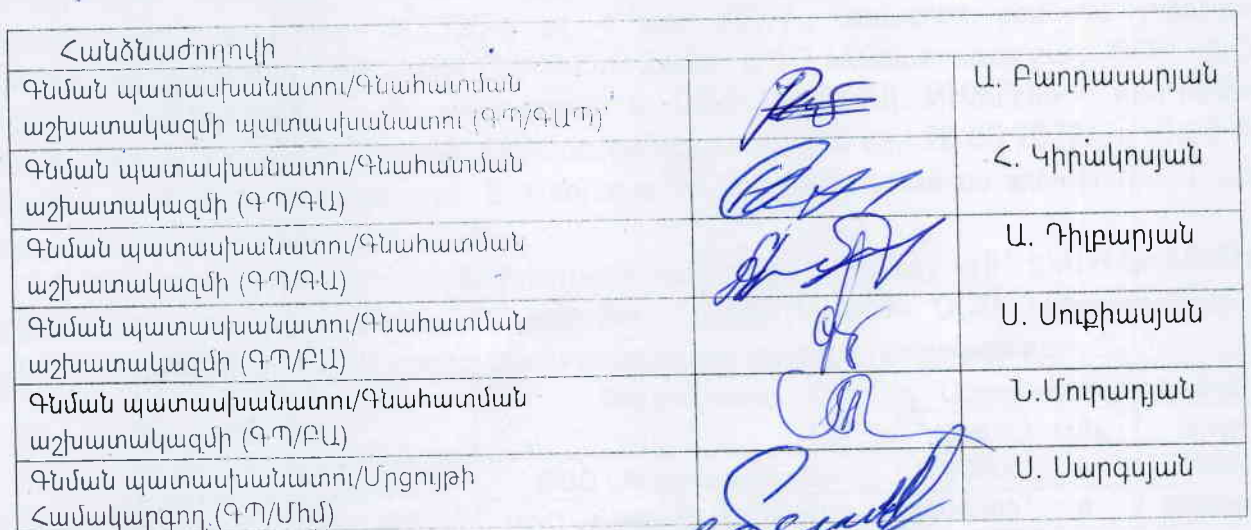 Հանձնաժողովի
Գնման պատասխանատու/Գնահատման
աշխատակազմի պատասխանատու (ԳՊ/ԳԱՊ)
Ա. Բաղդասարյան
Գնման պատասխանատու/Գնահատման
աշխատակազմի (ԳՊ/ԳԱ)
Հ. Կիրակոսյան
Գնման պատասխանատու/Գնահատման
աշխատակազմի (ԳՊ/ԳԱ)
Ա. Դիլբարյան
Գնման պատասխանատու/Գնահատման
աշխատակազմի (ԳՊ/ԲԱ)
Ս. Սուքիասյան
Գնման պատասխանատու/Գնահատման
աշխատակազմի (ԳՊ/ԲԱ)
Ն.Մուրադյան
Գնման պատասխանատու/Մրցույթի
Համակարգող (ԳՊ/Մհմ)
Ս. Սարգսյան